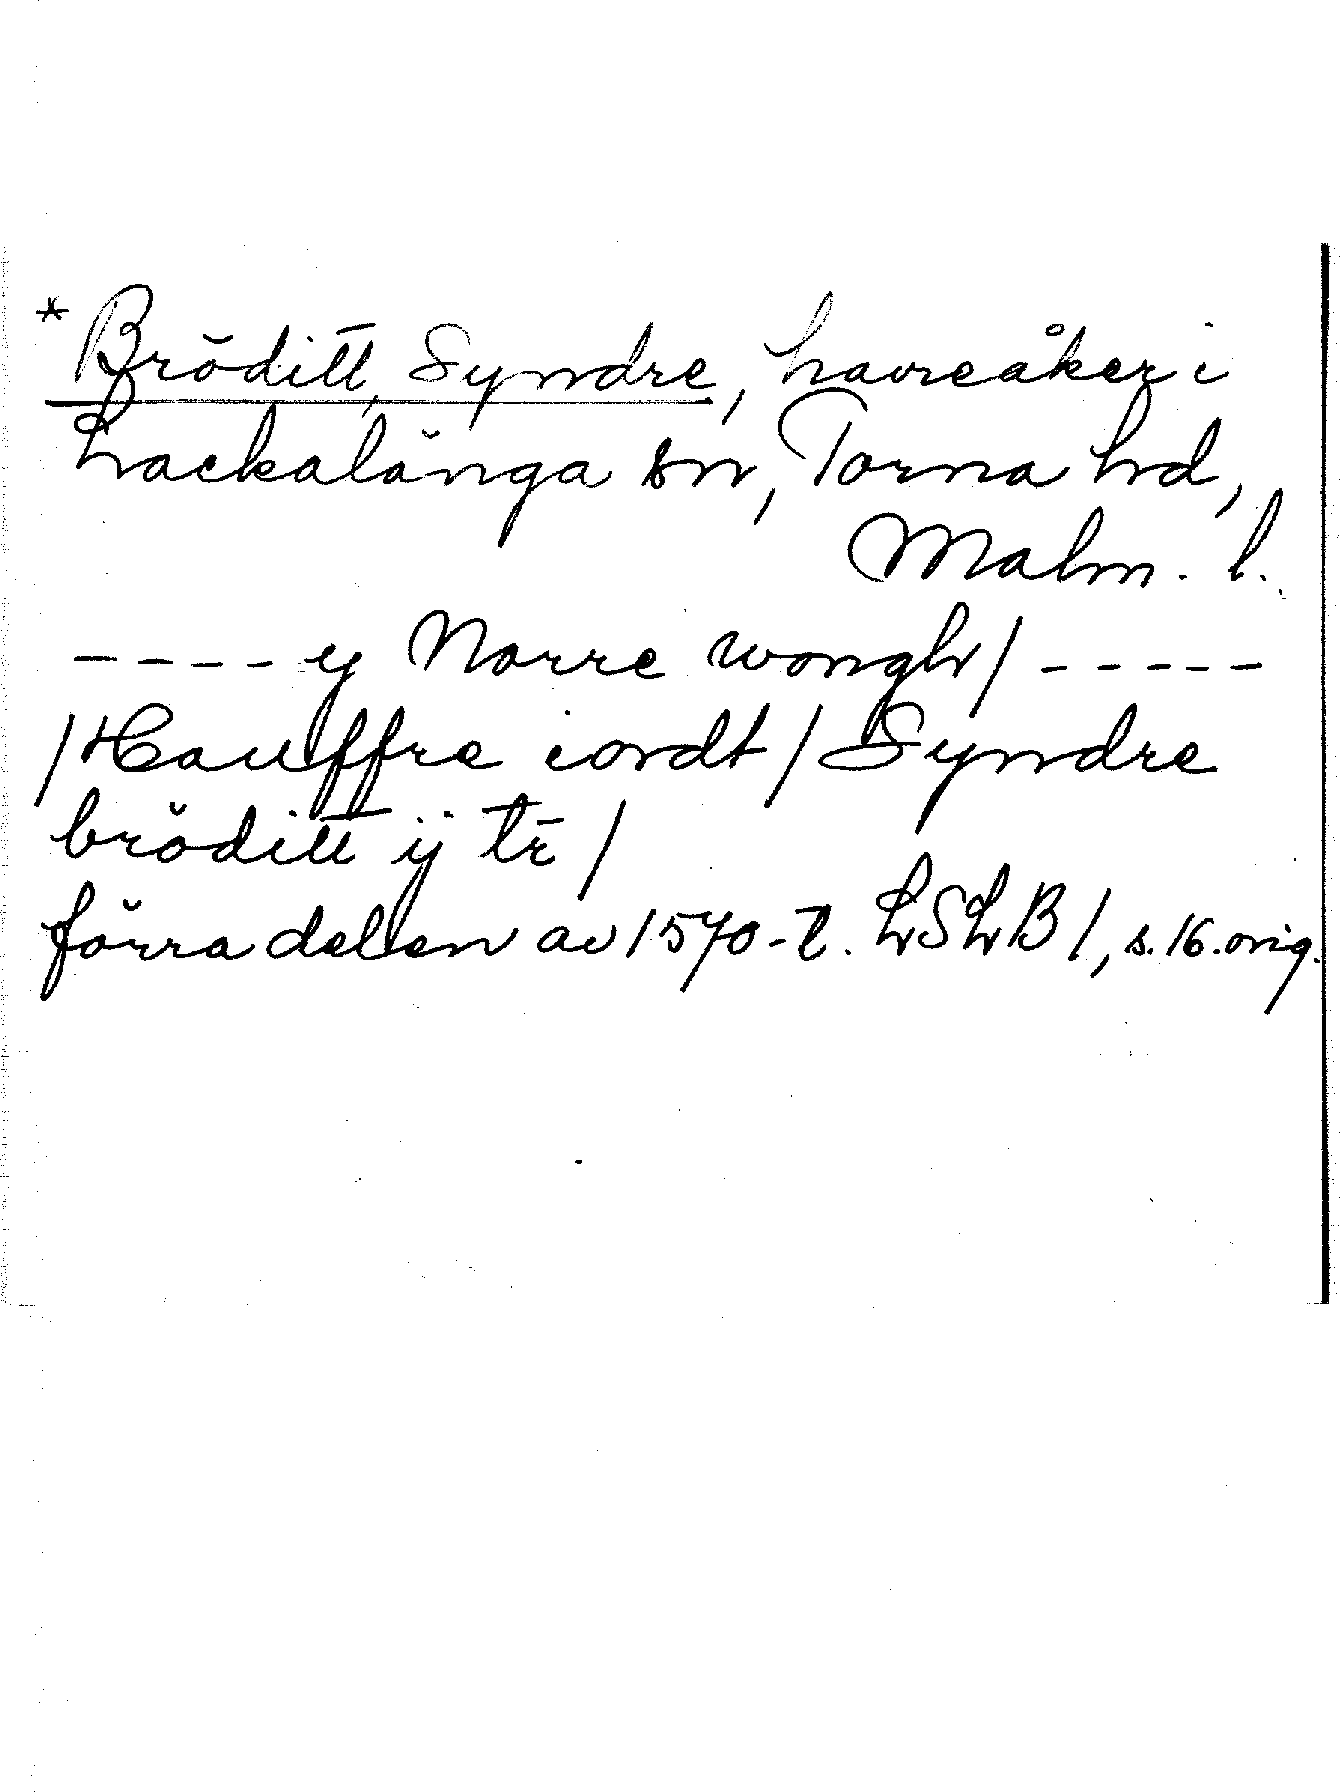 *Bröditt, Syndre, havreåker i
Lackalänga sn, Torna hd,
Malm. l.
---- y Norre wongh/ -----
/Hauffre iordt/ Syndre
bröditt ij tr̄ /
förra delen av 1570-t. LSLB 1, s. 16. orig.